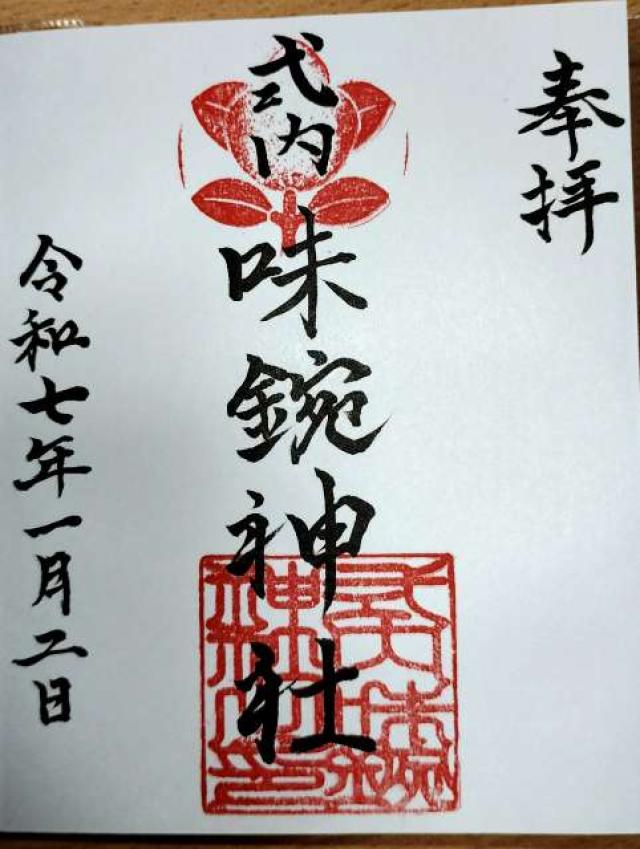 奉拝
式内 味鋺神社
令和七年一月二日